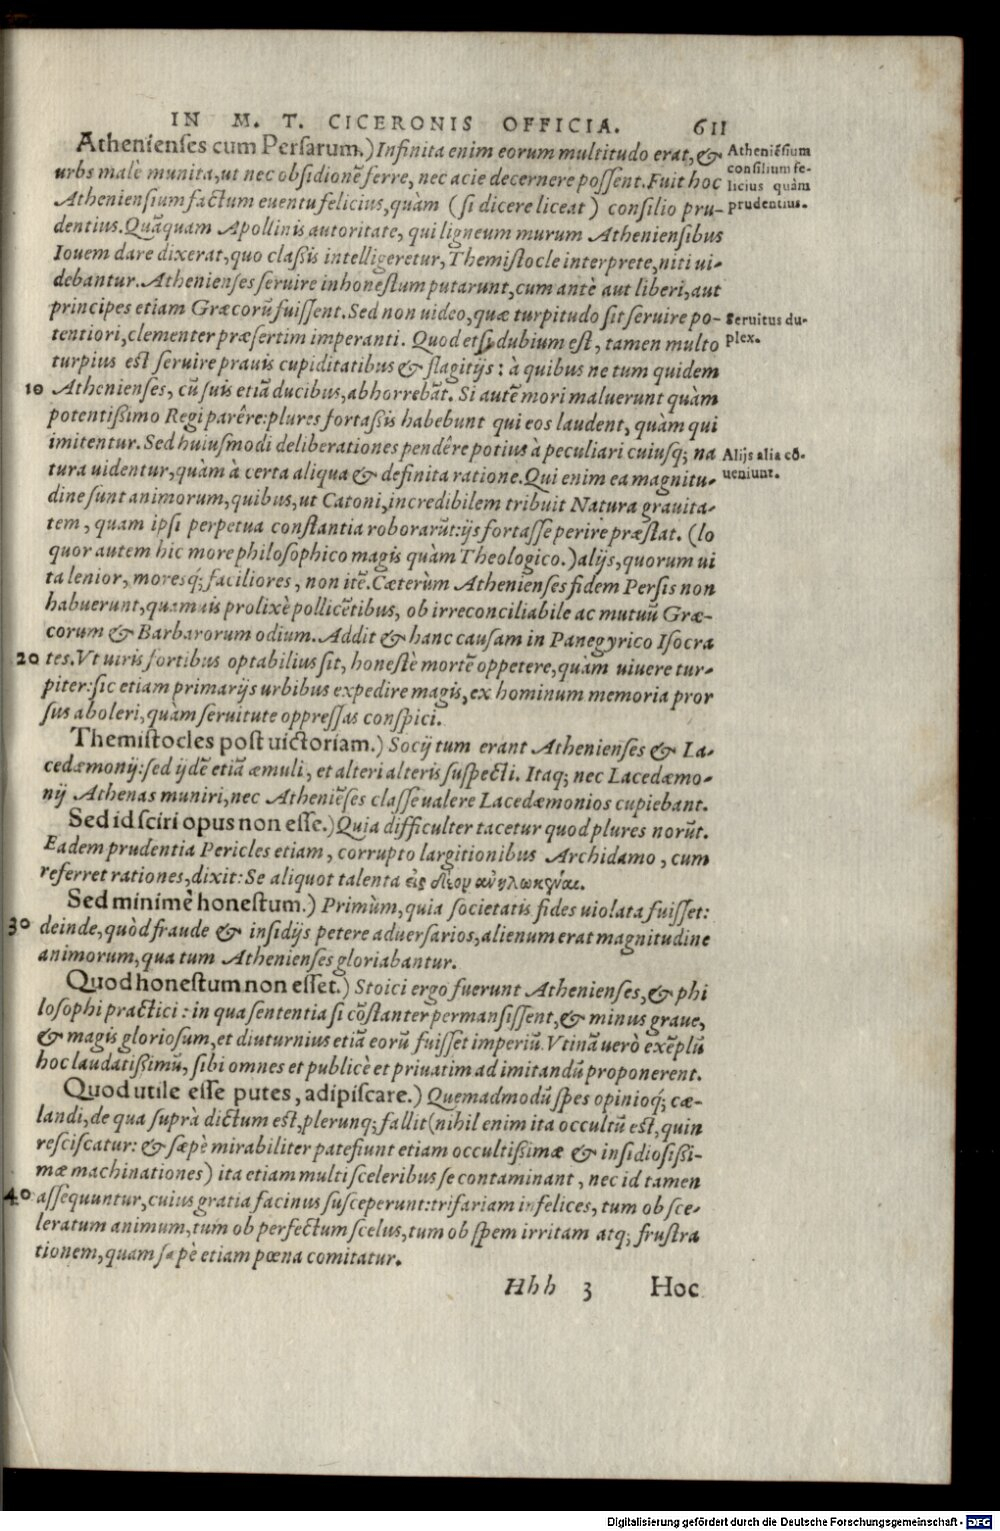 IN M. T. CICERONIS OFFICIA. 611
Athenienses cum Persarum.) Infinita enim eorum multitudo erat, &
urbs malè munita, ut nec obsidionẽ ferre, nec acie decernere possent. Fuit hoc
Atheniensium factum euentu felicius, quàm (si dicere liceat) consilio pru-
dentius. Quãquam Apollinis autoritate, qui ligneum murum Atheniensibus
Iouem dare dixerat, quo classis intelligeretur, Themistocle interprete, niti ui-
debantur. Athenienses seruire inhonestum putarunt, cum antè aut liberi, aut
principes etiam Græcorũ fuissent. Sed non uideo, quæ turpitudo sit seruire po-
tentiori, clementer præsertim imperanti. Quod etsi dubium est, tamen multo
turpius est seruire prauis cupiditatibus & flagitijs: à quibus ne tum quidem
10 Athenienses, cũ suis etiã ducibus, abhorrebãt. Si autẽ mori maluerunt quàm
potentissimo Regi parêre: plures fortassis habebunt qui eos laudent, quàm qui
imitentur. Sed huiusmodi deliberationes pendêre potius à peculiari cuiusq; na
tura uidentur, quàm à certa aliqua & definita ratione. Qui enim ea magnitu-
dine sunt animorum, quibus, ut Catoni, incredibilem tribuit Natura grauita-
tem, quam ipsi perpetua constantia roborarũt: ijs fortasse perire præstat. (lo
quor autem hic more philosophico magis quàm Theologico.) alijs, quorum ui
ta lenior, moresq; faciliores, non itẽ. Cæterùm Athenienses fidem Persis non
habuerunt, quamuis prolixè pollicẽtibus, ob irreconciliabile ac mutuũ Græ-
corum & Barbarorum odium. Addit & hanc causam in Panegyrico Isocra
20 tes. Vt uiris fortibus optabilius sit, honestè mortẽ oppetere, quàm uiuere tur-
piter: sic etiam primarijs urbibus expedire magis, ex hominum memoria pror
sus aboleri, quàm seruitute oppressas conspici.
Themistocles post uictoriam.) Socij tum erant Athenienses & La-
cedæmonij: sed ijdẽ etiã æmuli, et alteri alteris suspecti. Itaq; nec Lacedæmo-
nij Athenas muniri, nec Atheniẽses classe ualere Lacedæmonios cupiebant.
Sed id sciri opus non esse.) Quia difficulter tacetur quod plures norũt.
Eadem prudentia Pericles etiam, corrupto largitionibus Archidamo, cum
referret rationes, dixit: Se aliquot talenta εἰς δέον ἀνηλωκέναι.
Sed minimè honestum.) Primùm, quia societatis fides uiolata fuisset:
30 deinde, quòd fraude & insidijs petere aduersarios, alienum erat magnitudine
animorum, qua tum Athenienses gloriabantur.
Quod honestum non esset.) Stoici ergo fuerunt Athenienses, & phi
losophi practici: in qua sententia si cõstanter permansissent, & minus graue,
& magis gloriosum, et diuturnius etiã eorũ fuisset imperiũ. Vtinã uerò exẽplũ
hoc laudatissimũ, sibi omnes et publicè et priuatim ad imitandũ proponerent.
Quod utile esse putes, adipiscare.) Quemadmodũ spes opinioq; cæ-
landi, de qua suprà dictum est, plerunq; fallit (nihil enim ita occultũ est, quin
resciscatur: & sæpè mirabiliter patefiunt etiam occultissimæ & insidiosissi-
mæ machinationes) ita etiam multi sceleribus se contaminant, nec id tamen
40 assequuntur, cuius gratia facinus susceperunt: trifariam infelices, tum ob sce-
leratum animum, tum ob perfectum scelus, tum ob spem irritam atq; frustra
tionem, quam sæpè etiam pœna comitatur.
Hhh 3 Hoc
Atheniẽsium
consilium fe-
licius quàm
prudentius.
Seruitus du-
plex.
Alijs alia cõ-
ueniunt.
Digitalisierung gefördert durch die Deutsche Forschungsgemeinschaft - DFG